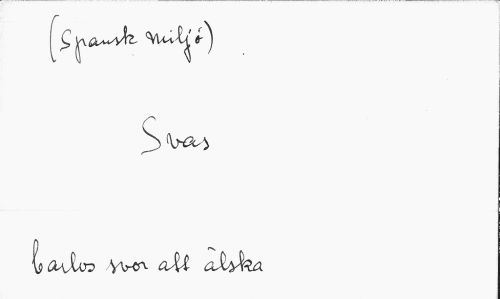 (Spansk miljö)
Svas
Carlos svor att älska